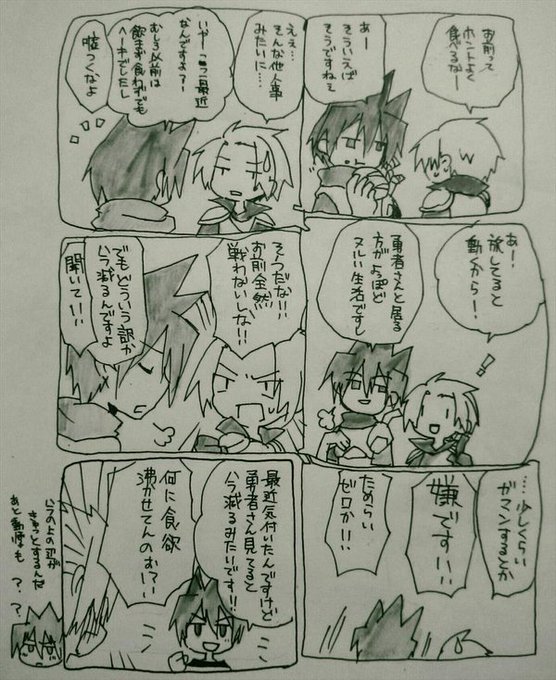 お前って
ホントよく
食べるなー
あー
そういえば
そうですねえ
ええ…
そんな他人事
みたいに…
いやーここ最近
なんですよ？
むしろ以前は
飲まず食わずでも
ヘーキでしたし
嘘つくなよ
あー！
旅してると
動くから！
勇者さんと居る
方がよっぽど
ヌルい生活ですし
そうだな!!
お前全然
戦わないしな!!
でもどういう訳か
ハラ減るんですよ
聞いて!!
…少しくらい
ガマンするとか
嫌です!!
ためらい
ゼロか!!
最近気付いたんですけど
勇者さん見てると
ハラ減るみたいです!!
何に食欲
沸かせてんのお前!!
ハラの上の辺が
きゅっとするんだ
あと動悸も
？？